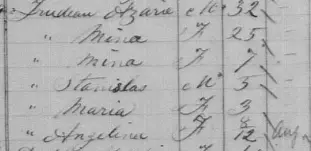 Trudeau Azarie M 32
" Mina F 25
" Mina F 7
" Stanislas M 5
" Maria F 3
" Angelina F 8/12 Aug